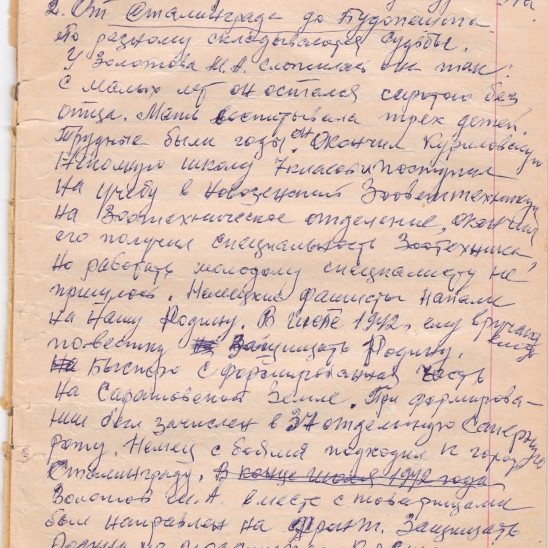 2. От Сталинграда до Будапешта.
По разному складывающая судьбы.
У Золотова М.А. сложилась она так:
С малых лет он остался сиротою без
отца. Мать воспитывала трех детей.
Трудные были годы. Он Окончил Куриловскую
школу 7 классов и поступил
на учебу в Новоузенский Зооветтехникум
на Зоотехническое отделение, окончил
его получил специальность Зоотехника,
Но работать молодому специалисту не
пришлось. Немецкие фашисты напали
на нашу Родину. В 1942 г. ему вручают
повестку на Защищать Родину.
На Быстро сформированная часть
на Саратовской земле. При формирова-
нии был зачислен в 37 отдельную Саперную
роту. Немец с боями подходил к городу
Сталинграду. В конце июля 1942 года
Золотов М.А. вместе с товарищами
был направлен на фронт. Защищать